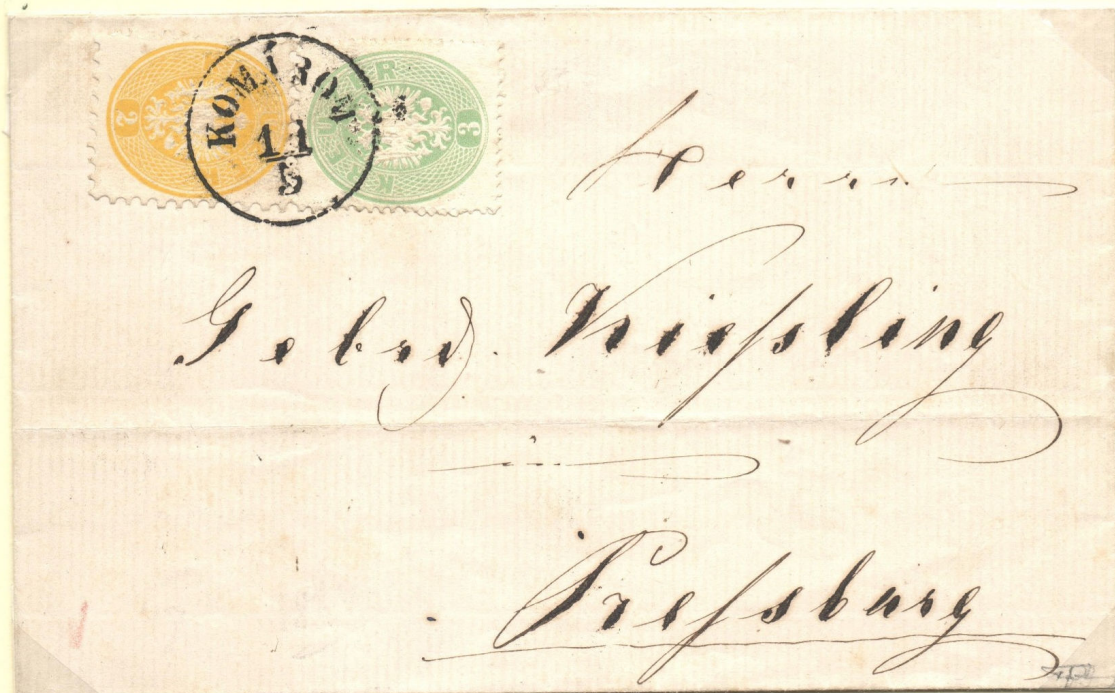 2
KOMÁROM
11
5
KREUZER
3
Herrn
Gebrd. Kießling
in
Preßburg